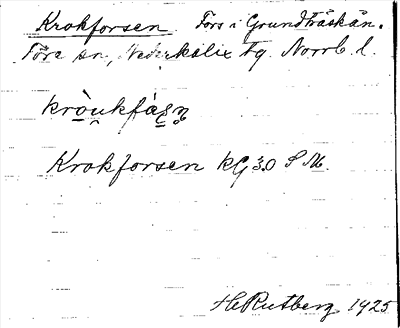 Krokforsen Fors i Grundträskån.
Töre sn, Nederkalix tg. Norrb. l.
kròu̯kfás̨n̥
Krokforsen kG 30 S M.
H Rutberg 1925